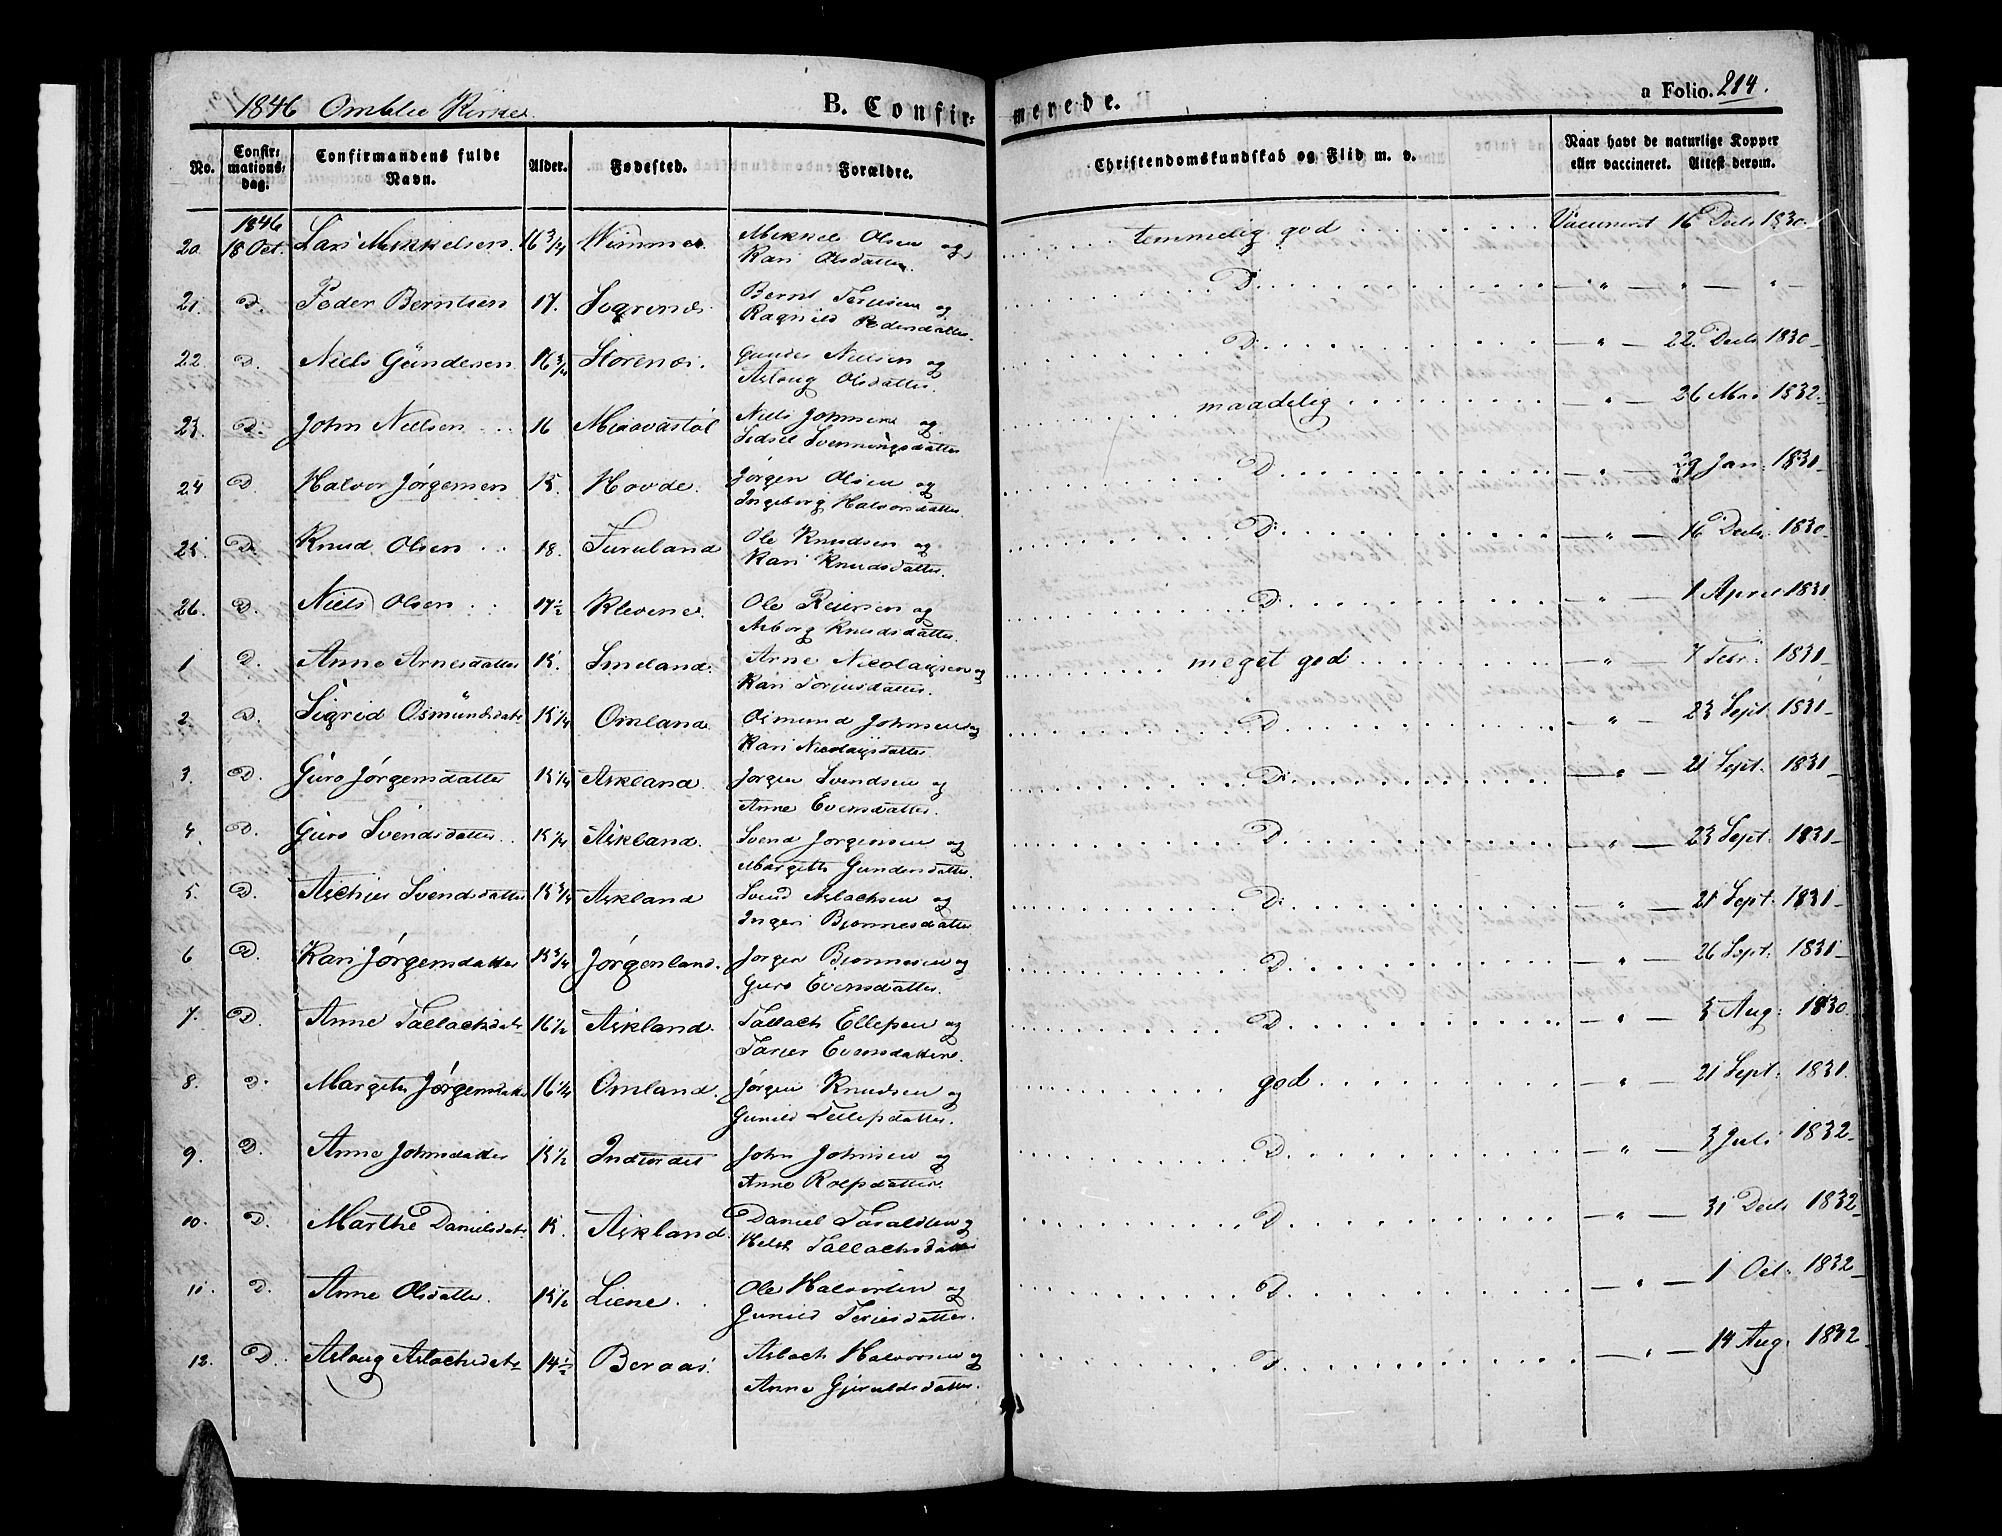 1846 Omblie Kirke.
B. Confirmerede.
a Folio. 214.
No. Confirmations-dag. Confirmandens fulde Navn. Alder. Fødested. Forældre. Christendomskundskab og Flid m. v. Naar havt de naturlige Kopper eller vaccineret. Attest derom.
1846
20. 18 Oct. Lars Mikkelsen. 16 3/4 Mikkel Olsen og temmelig god Vaccineret 16 Decb 1830
Kari Olsdatter.
21. D. Peder Berntsen 17. Bernt og D. " " "
Ragnild Pedersdatter.
22. D. Niels Gundersen 16 3/4 Storenes. Gunder Nielsen og D. " 22 Decb 1830
Aslaug Olsdatter.
23. D. John Nielsen 16 Niels Johnsen og maadelig " 26 Mai 1832.
Sidsel Svenningsdatter
24 D. Halvor Jørgensen 15. Hovde. Jørgen Olsen og D. " 29 Jan: 1831
Ingeborg Halvorsdatter.
25. D. Knud Olsen 18. Furuland Ole Knudsen og D. " 16 Decb. 1830
Kari Knudsdatter.
26. D. Niels Olsen 17 1/2 Klevene Ole Reiersen og D. " 1 April 1831
Asborg Knudsdatter.
1 D. Anne Arnesdatter 15. Smeland. Arne Nicolaysen og meget god " 7 Febr: 1831
Kari Torjusdatter.
2. D. Sigrid Osmundsdatr 15 1/4 Omland. Osmund Johnsen og D. " 23 Sept. 1831
Kari Nicolaysdatter
3. D. Guro Jørgensdatter 15 1/4 Askland. Jørgen Svendsen og D. " 21 Sept. 1831
Anne Evensdatter.
4 D. Guro Svendsdatter 15 1/4 Askland. Svend Jørgensen og D. " 23 Sept. 1831
Margith Gundersdatter.
5. D. Svendsdatter 15 3/4 Askland Svend Aslachsen og D. " 21 Sept. 1831
Ingeri Bjonnesdatter
6 D. Kari Jørgensdatter 15 3/4 Jørgenland. Jørgen Bjonnesen og D. " 26 Sept: 1831
Guro Evensdatter.
7. D. Anne Tallachsdatr 16 1/2 Askland. Tallach Ellefsen og D. " 3 Aug: 1830
Evensdatter.
8. D. Margith Jørgensdatr 16 1/4 Omland. Jørgen Knudsen og god " 21 Sept: 1831.
Gunild Tellefsdatter.
9. D. Anne Johnsdatter 15 1/2 John Johnsen og D. " 3 Juli 1832
Anne Rolfsdatter.
10. D. Marthe Danielsdatr 15. Askland. Daniel Taraldsen og D. " 31 Decb 1832
Tallachsdatter
11. D. Anne Olsdatter. 15 1/2 Liene. Ole Halvorsen og D. " 1 Oct. 1832
Gunild Terjesdatter.
12. D. Aslaug Aslachsdatr 14 1/2 Beraas. Aslach Halvorsen og D. " 14 Aug. 1832
Anne Gjeruldsdatter.